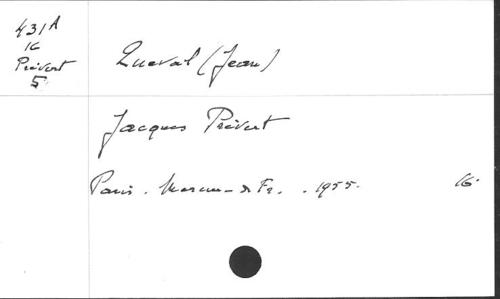 431A
16
Prévert
5
Queval (Jean)
Jacques Prévert
Paris. Mercure de Fr. . 1955. 16°